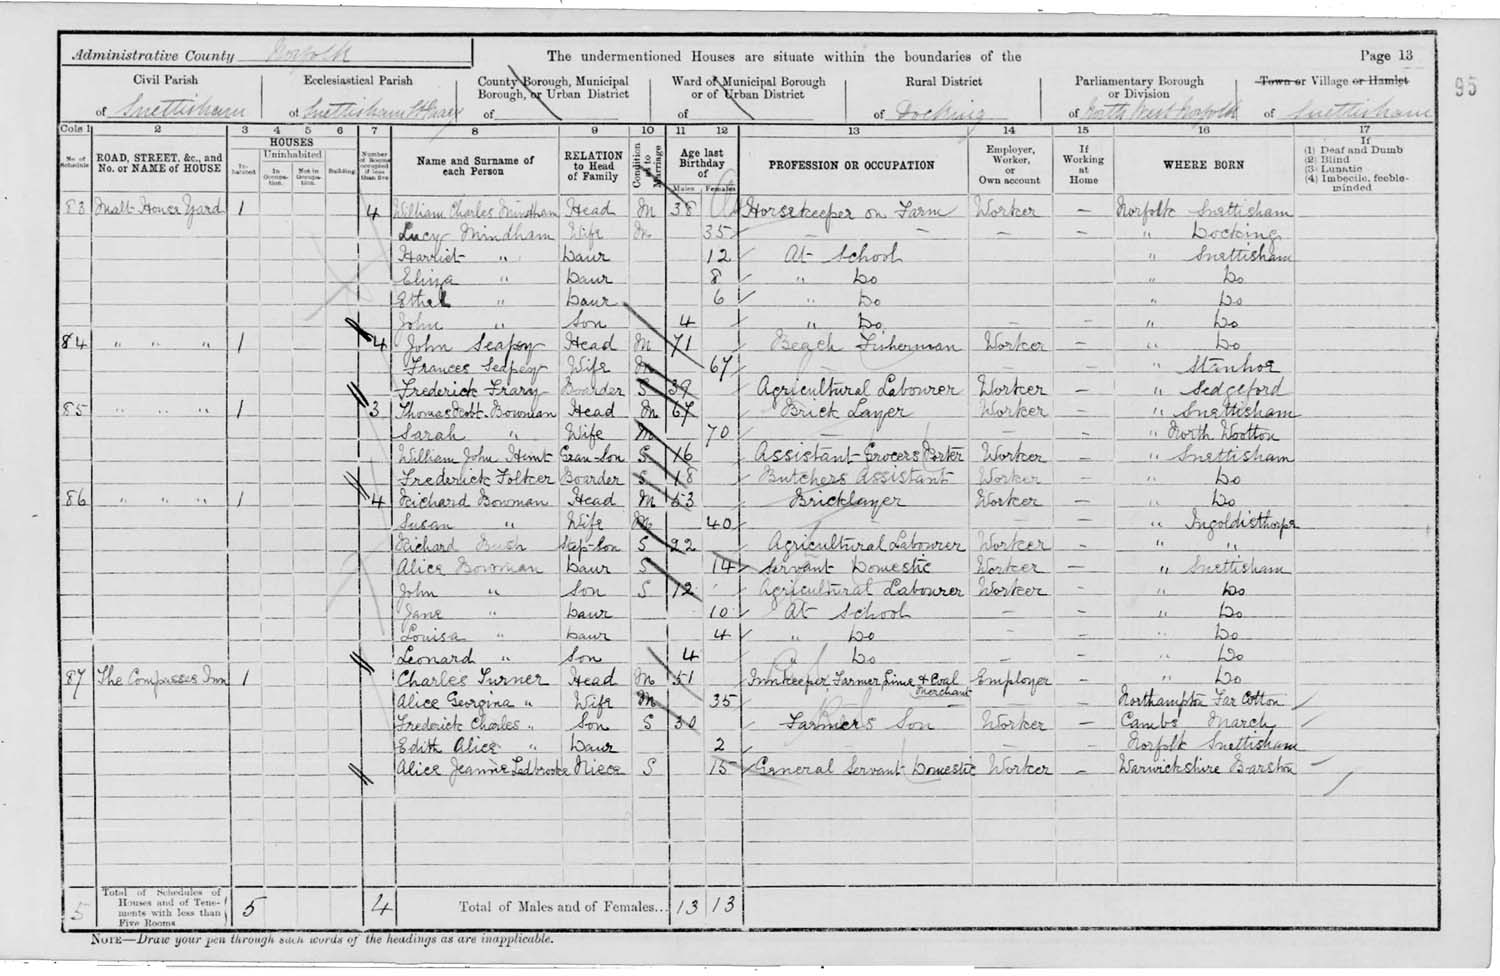 Administrative County Norfolk The undermentioned Houses are situate within the boundaries of the Page 13
Civil Parish Ecclesiastical Parish County Borough, Municipal Borough, or Urban District Ward of Municipal Borough or of Urban District Rural District Parliamentary Borough or Division Town or Village or Hamlet
of Snettisham of Snettisham St Mary of of of Docking of North West Norfolk of Snettisham
95
Cols 1 2 3 4 5 6 7 8 9 10 11 12 13 14 15 16 17
No. of Schedule ROAD, STREET, &c., and No. or NAME of HOUSE HOUSES Inhabited Uninhabited In Occupation. Not in Occupation. Building Number of Rooms occupied if less than five Name and Surname of each Person RELATION to Head of Family Condition as to Marriage Age last Birthday of Males Females PROFESSION OR OCCUPATION Employer, Worker, or Own account If Working at Home WHERE BORN If (1) Deaf and Dumb (2) Blind (3) Lunatic (4) Imbecile, feeble-minded
83 Malt House Yard 1 4 William Charles Mindham Head M 38 Horsekeeper on Farm Worker – Norfolk Snettisham
Lucy Mindham Wife M 35 – – – – " Docking
Harriet " Daur 12 At School " Snettisham
Eliza " Daur 8 " Do " Do
Ethel " Daur 6 " Do " Do
John " Son 4 " Do – – " Do
84 " " " 1 4 John Seapey Head M 71 Beach Fisherman Worker – " Do
Frances Seapey Wife M 67 " Stanhoe
Frederick Frary Boarder S 39 Agricultural Labourer Worker – " Sedgeford
85 " " " 1 3 Thomas Bowman Head M 67 Brick Layer Worker – " Snettisham
Sarah " Wife M 70 – – – " North Wootton
William John Hunt Gran-Son S 16 Assistant Grocers Porter Worker – " Snettisham
Frederick Folker Boarder S 18 Butchers Assistant Worker – " Do
86 " " " 1 4 Richard Bowman Head M 53 Bricklayer Worker – " Do
Susan " Wife M 40 – – " Ingoldisthorpe
Richard Bush Step-Son S 22 Agricultural Labourer Worker – " "
Alice Bowman Daur S 14 Servant Domestic Worker – " Snettisham
John " Son S 12 Agricultural Labourer Worker – " Do
Jane " Daur 10 At School – – " Do
Louisa " Daur 4 " Do – – " Do
Leonard " Son 4 Do – – " Do
87 The Compasses Inn 1 Charles Turner Head M 51 Innkeeper, Farmer Lime & Coal Merchant Employer – " Do
Alice Georgina " Wife M 35 – – Northampton Far Cotton
Frederick Charles " Son S 30 Farmers Son Worker – Cambs March
Edith Alice " Daur 2 – – Norfolk Snettisham
Alice Jeannie Ledbrooke Niece S 15 General Servant Domestic Worker – Warwickshire Barston
5 Total of Schedules of Houses and of Tenements with less than Five Rooms 5 4 Total of Males and of Females... 13 13
NOTE—Draw your pen through such words of the headings as are inapplicable.